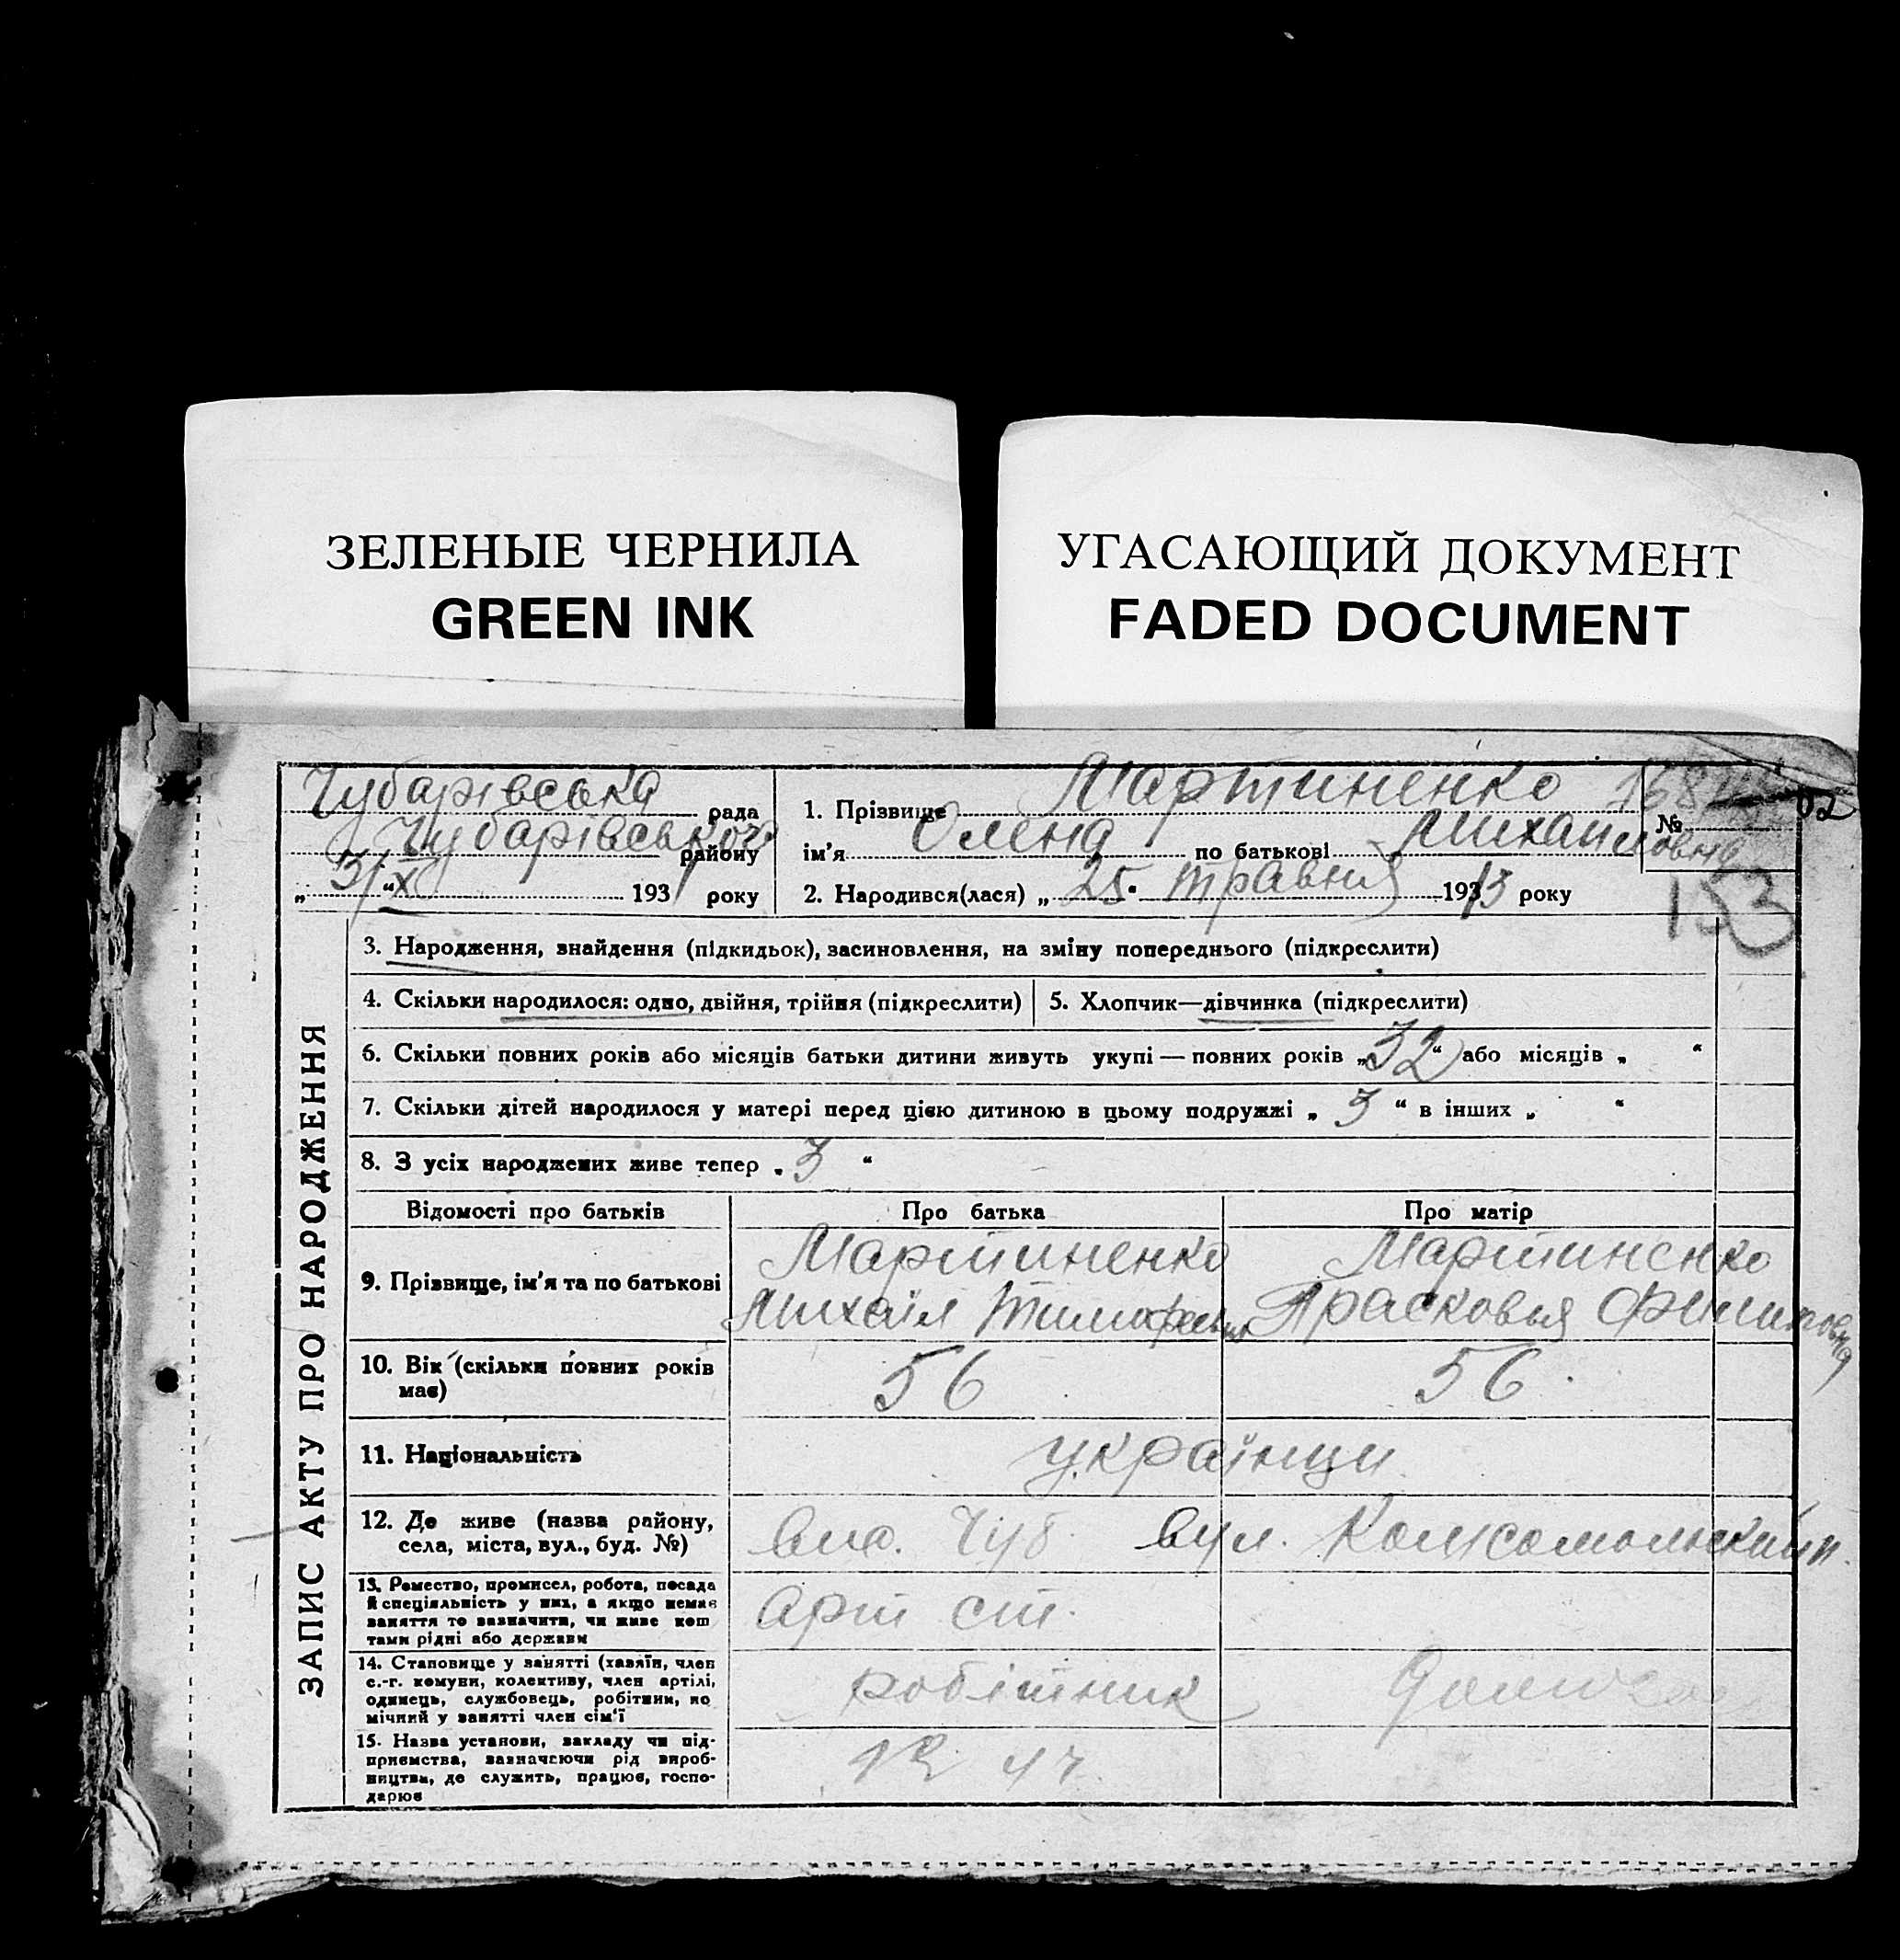 ЗЕЛЕНЫЕ ЧЕРНИЛА
GREEN INK
УГАСАЮЩИЙ ДОКУМЕНТ
FADED DOCUMENT
ЗАПИС АКТУ ПРО НАРОДЖЕННЯ
Чубарівська рада
Чубарівського району
„ 31 “ X 193 року
1. Прізвище Мартиненко
ім'я Олена по батькові Михаиловна
№
153
2. Народився(лася) „ 25 травня 1913 року
3. Народження, знайдення (підкидьок), засиновлення, на зміну попереднього (підкреслити)
4. Скільки народилося: одно, двійня, трійня (підкреслити)
5. Хлопчик—дівчинка (підкреслити)
6. Скільки повних років або місяців батьки дитини живуть укупі — повних років „ 32 “ або місяців „ “
7. Скільки дітей народилося у матері перед цією дитиною в цьому подружжі „ 3 “ в інших „ “
8. З усіх народжених живе тепер „ 3 “
Відомості про батьків
Про батька
Про матір
9. Прізвище, ім'я та по батькові
Мартиненко
Михаіл Тимофеевич
Мартиненко
Прасковья Филиповна
10. Вік (скільки повних років
має)
56
56
11. Національність
українци
12. Де живе (назва району,
села, міста, вул., буд. №)
Чуб. вул. Комсомольский
13. Ремество, промисел, робота, посада
й спеціяльність у них, а якщо немає
заняття то зазначити, чи живе кош
тами рідні або держави
арт ст.
14. Становище у занятті (хазяїн, член
с.-г. комуни, колективу, член артілі,
одинець, службовець, робітник, по
мічний у занятті член сім'ї
робітник
15. Назва установи, закладу чи під-
приємства, зазначаючи рід вироб-
ництва, де служить, працює, госпо-
дарює